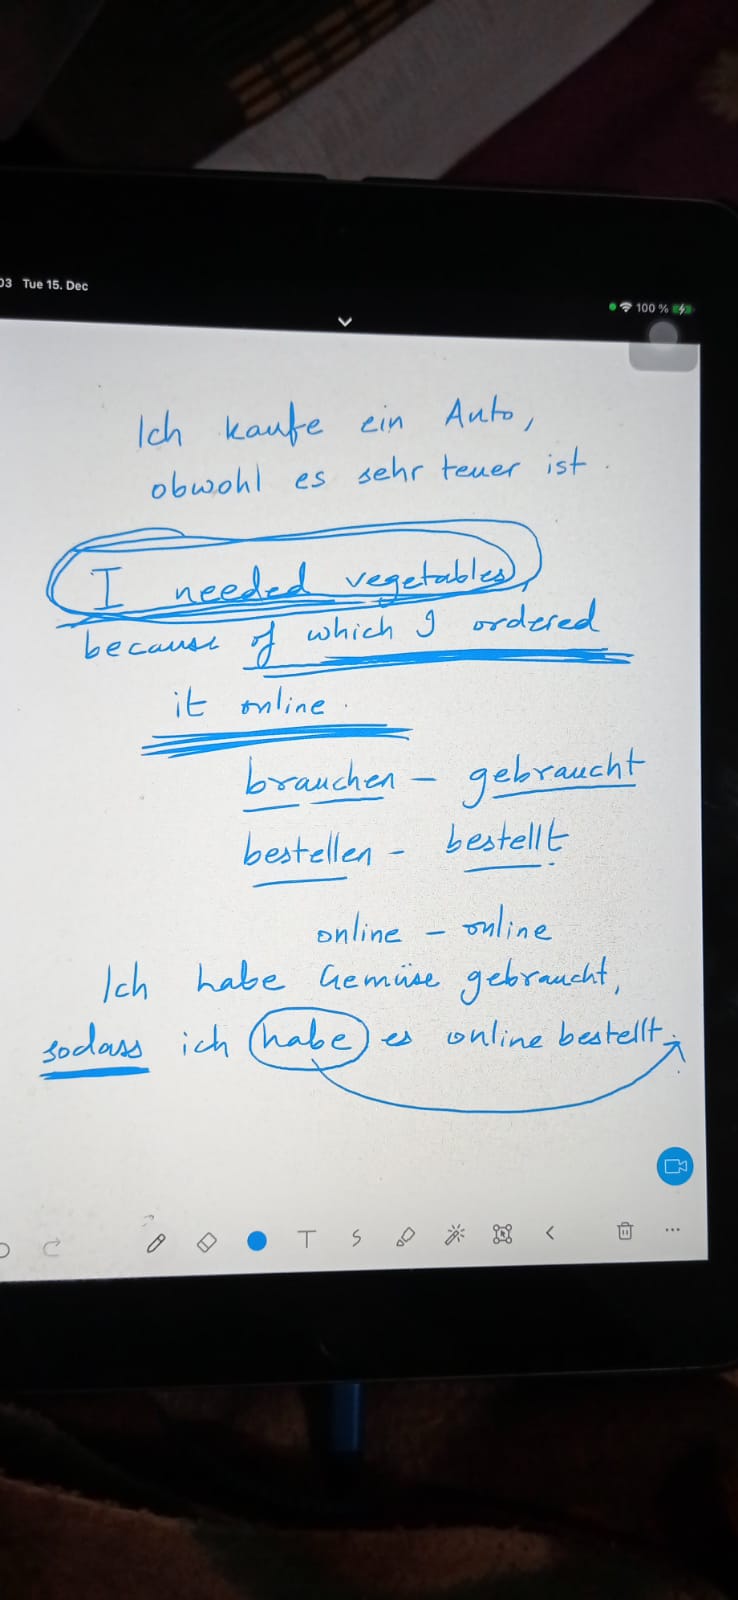 03 Tue 15. Dec
100 %
Ich kaufe ein Auto,
obwohl es sehr teuer ist.
I needed vegetables,
because of which I ordered
it online.
brauchen – gebraucht
bestellen – bestellt
online – online
Ich habe Gemüse gebraucht,
sodass ich habe es online bestellt.
T S